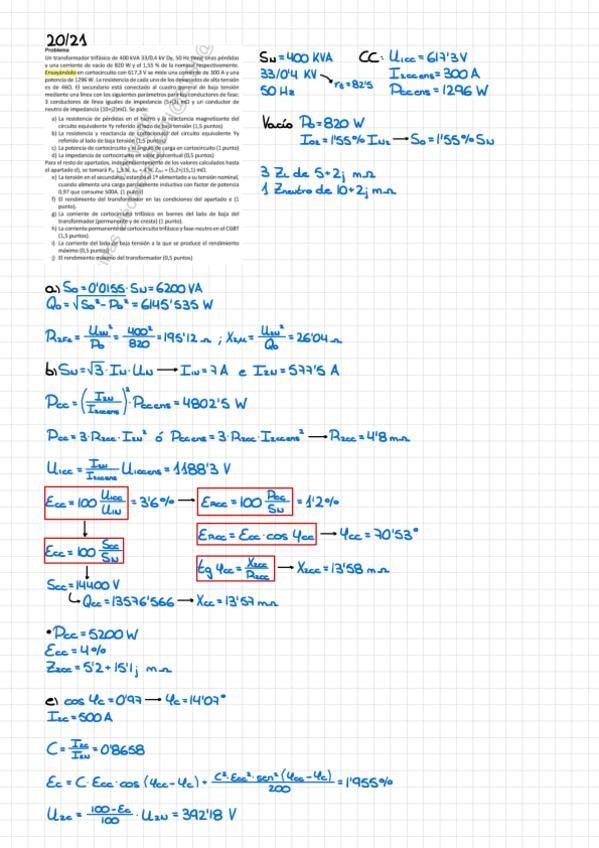 20/21
Problema
Un transformador trifásico de 400 kVA 33/0,4 kV Dy, 50 Hz tiene unas pérdidas
y una corriente de vacío de 820 W y el 1,55 % de la nominal, respectivamente.
Ensayándolo en cortocircuito con 617,3 V se mide una corriente de 300 A y una
potencia de 1296 W. La resistencia de cada uno de los devanados de alta tensión
es de 46Ω. El secundario está conectado al cuadro general de baja tensión
mediante una línea con los siguientes parámetros para los conductores de fase:
3 conductores de línea iguales de impedancia (5+2j) mΩ y un conductor de
neutro de impedancia (10+2j)mΩ. Se pide:
a) La resistencia de pérdidas en el hierro y la reactancia magnetizante del
circuito equivalente Yy referido al lado de baja tensión (1,5 puntos)
b) La resistencia y reactancia de cortocircuito del circuito equivalente Yy
referido al lado de baja tensión (1,5 puntos)
c) La potencia de cortocircuito y el ángulo de carga en cortocircuito (1 punto)
d) La impedancia de cortocircuito en valor porcentual (0,5 puntos)
Para el resto de apartados, independientemente de los valores calculados hasta
el apartado d), se tomará
e) La tensión en el secundario, estando el 1º alimentado a su tensión nominal,
cuando alimenta una carga parcialmente inductiva con factor de potencia
0,97 que consume 500A. (1 punto)
f) El rendimiento del transformador en las condiciones del apartado e (1
punto).
g) La corriente de cortocircuito trifásico en barnes del lado de baja del
transformador (permanente y de cresta) (1 punto).
h) La corriente permanente de cortocircuito trifásico y fase-neutro en el CGBT
(1,5 puntos).
i) La corriente del lado de baja tensión a la que se produce el rendimiento
máximo (0,5 puntos)
j) El rendimiento máximo del transformador (0,5 puntos)
SN = 400 KVA
33/0'4 KV → r₀ = 82'5
50 Hz
CC: U1cc = 617'3V
I2ccens = 300 A
Pccens = 1296 W
Vacío P0 = 820 W
I02 = 1'55% I2N → S0 = 1'55% SN
3 ZL de 5+2j mΩ
1 Zneutro de 10+2j mΩ
a) S0 = 0'0155 · SN = 6200 VA
Q0 = √(S0² - P0²) = 6145'535 W
R2Fe = U2N²/P0 = 400²/820 = 195'12 Ω ; X2μ = U2N²/Q0 = 26'04 Ω
b) SN = √3 · IN · UN → I1N = 7 A e I2N = 577'5 A
Pcc = (I2N/I2ccens)² · Pccens = 4802'5 W
Pcc = 3 · R2cc · I2N² ó Pccens = 3 · R2cc · I2ccens² → R2cc = 4'8 mΩ
U1cc = I2N/I2ccens U1ccens = 1188'3 V
Ecc = 100 U1cc/U1N = 3'6% → ERcc = 100 Pcc/SN = 1'2%
ERcc = Ecc · cos φcc → φcc = 70'53°
Ecc = 100 Scc/SN
tg φcc = X2cc/R2cc → X2cc = 13'58 mΩ
Scc = 14400 V
Qcc = 13576'566 → Xcc = 13'57 mΩ
• Pcc = 5200 W
Ecc = 4%
Z2cc = 5'2 + 15'1j mΩ
e) cos φc = 0'97 → φc = 14'07°
I2c = 500 A
C = I2c/I2N = 0'8658
Ec = C · Ecc · cos (φcc - φc) + C² · Ecc² · sen² (φcc - φc)/200 = 1'955%
U2c = 100-Ec/100 · U2N = 392'18 V